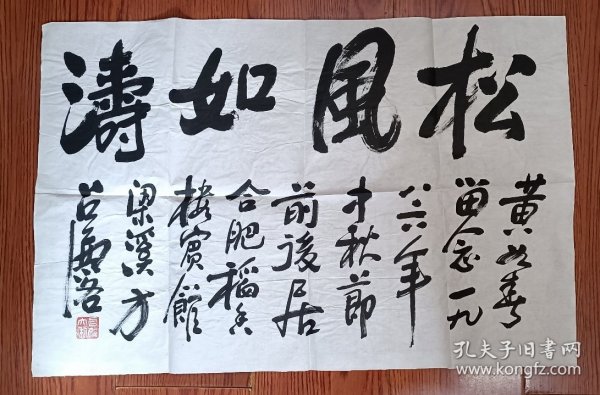 松風如濤
黄春
留念一九
八六年
中秋節
前後居
合肥稻香
樓賓館
梁溪方
召
孔夫子旧书网
www.kongfz.com